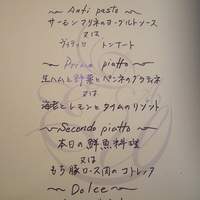 ~ Anti pasto ~
サーモンマリネのヨーグルトソース
又は
ヴィテッロ トンナート
~ Primo piatto ~
生ハムと野菜とペンネのグラティネ
又は
海老とレモンとタイムのリゾット
~ Secondo piatto ~
本日の鮮魚料理
又は
もち豚ロース肉のコトレッタ
~ Dolce ~